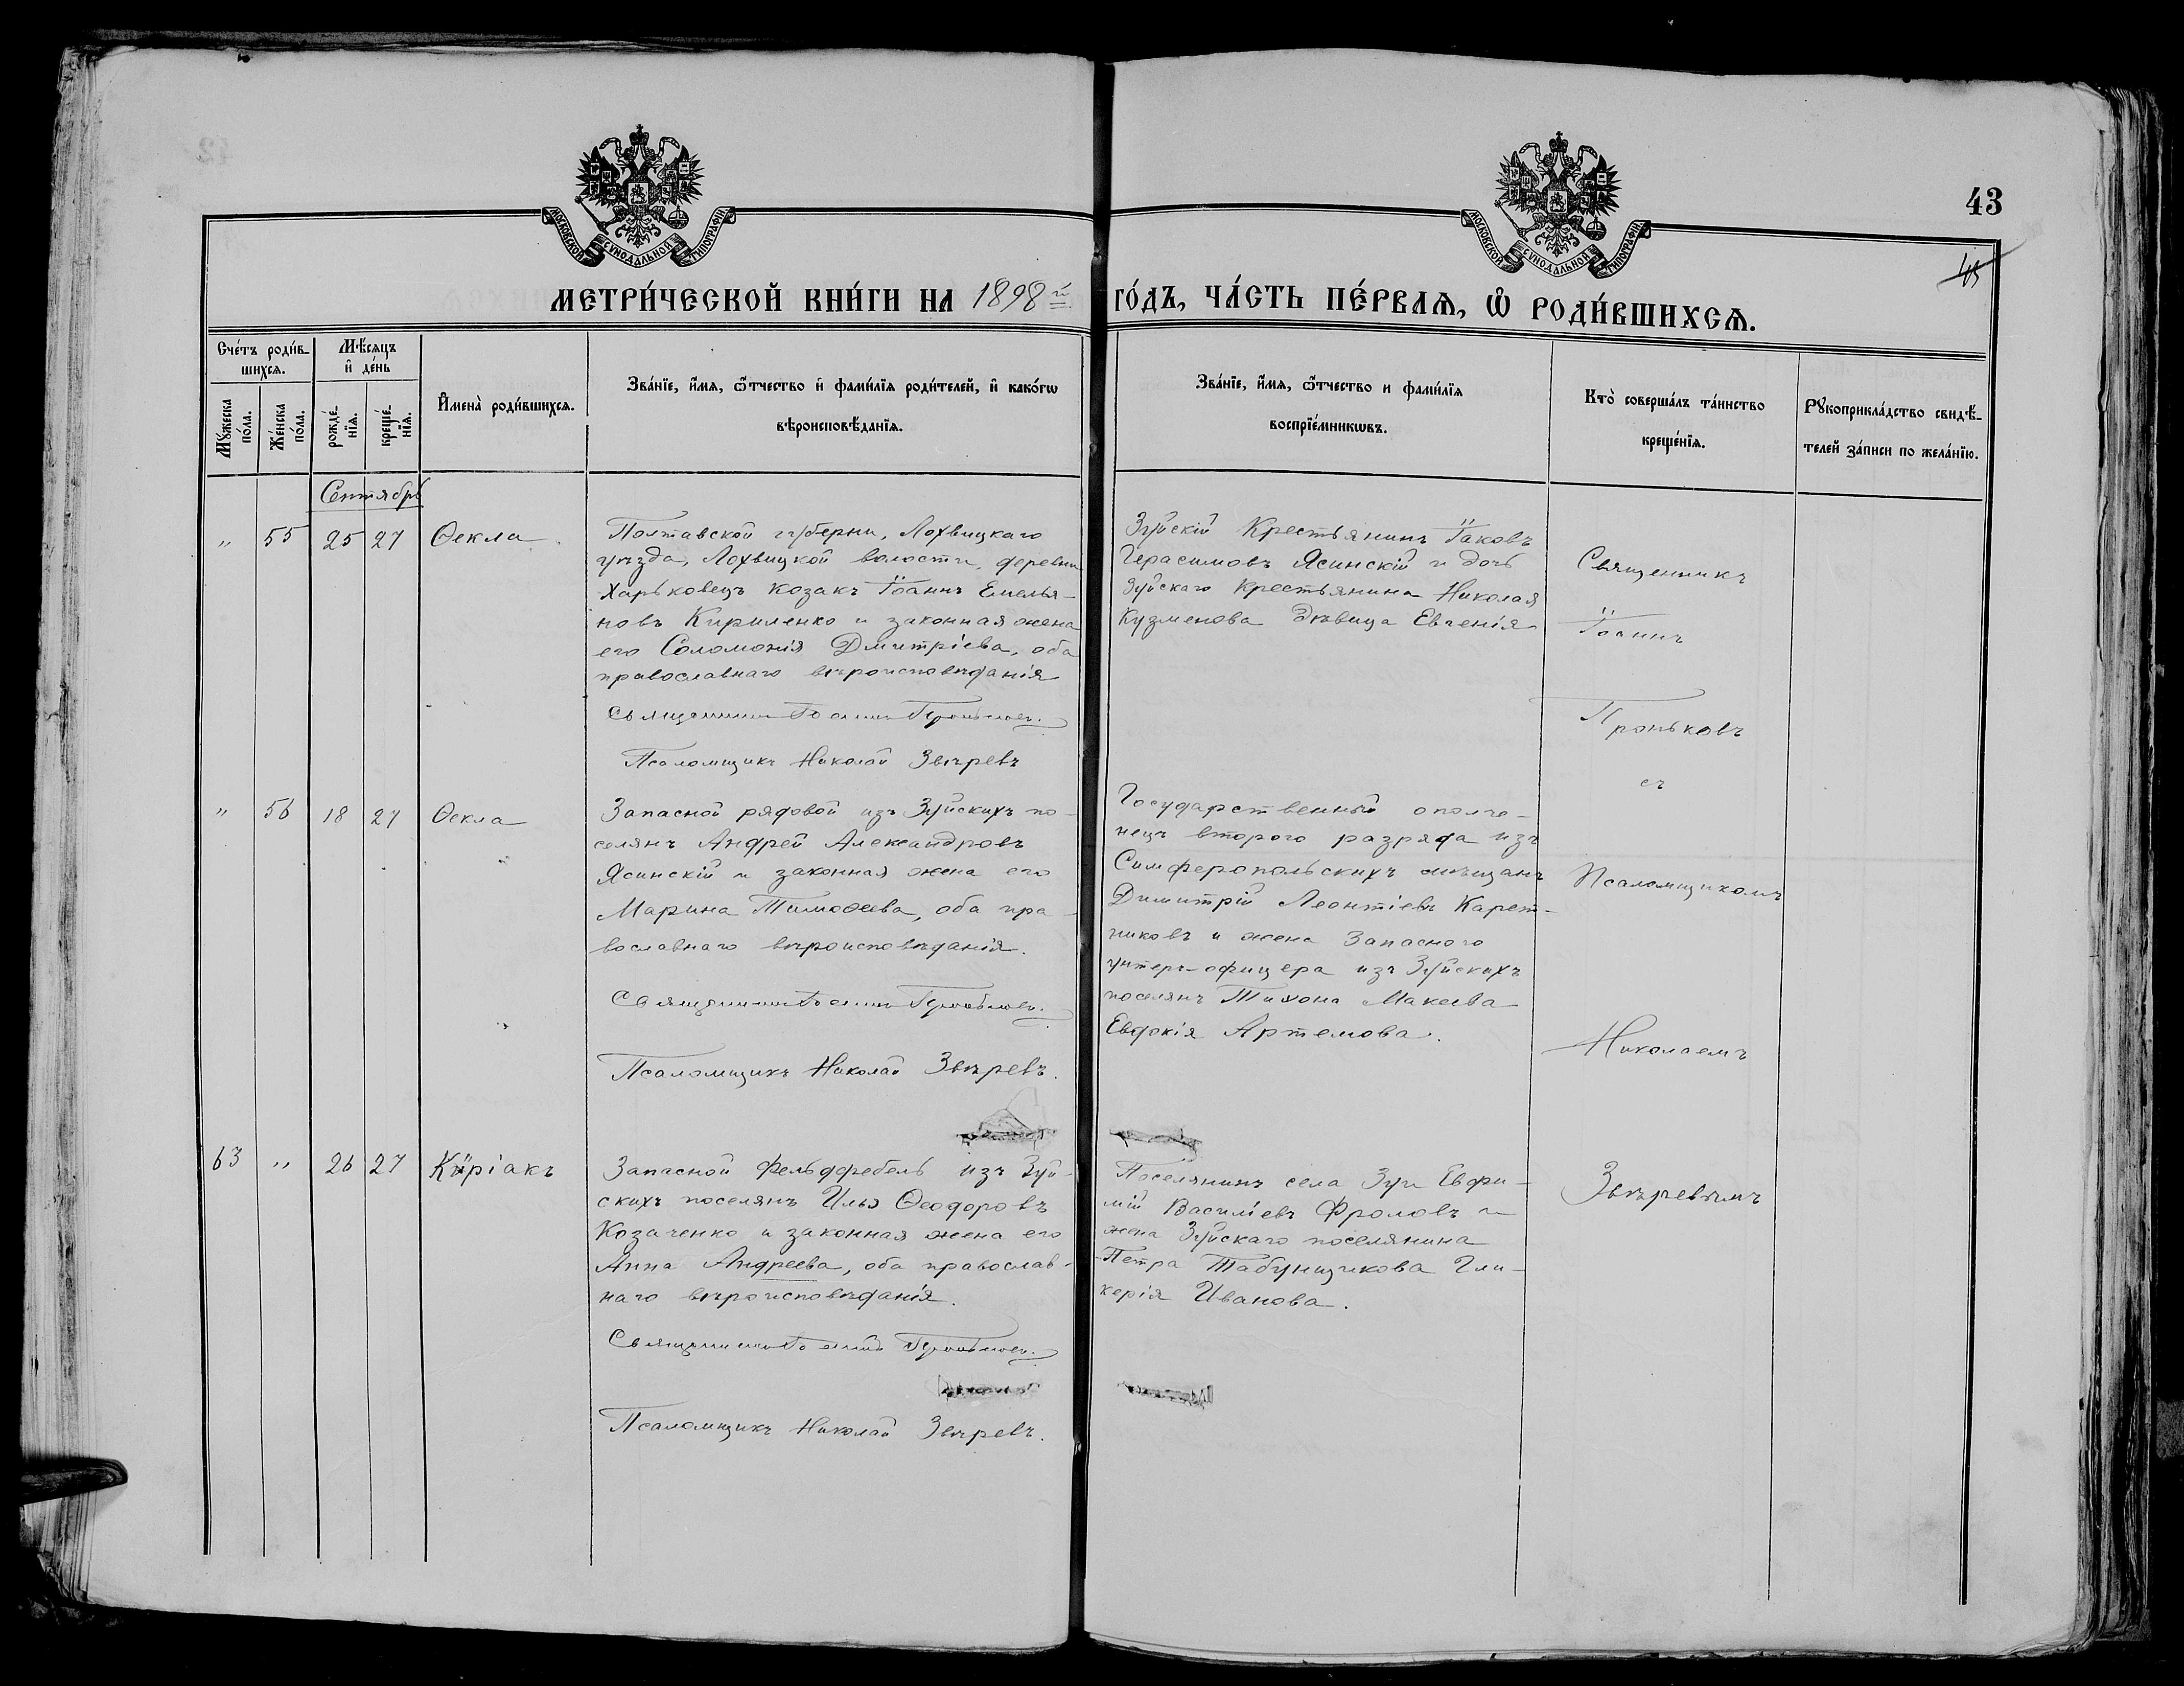 43
МОСКОВСКОЙ СѴНОДАЛЬНОЙ ТИПОГРАФІИ
МОСКОВСКОЙ СѴНОДАЛЬНОЙ ТИПОГРАФІИ
МЕТРИ́ЧЕСКОЙ КНИ́ГИ НА 1898й
ГО́ДЪ, ЧА́СТЬ ПЕ́РВАѦ, Ѡ РОДИ́ВШИХСѦ.
Сче́тъ роди́в-
шихсѧ.
Мѣ́сѧцъ
и де́нь
Мꙋ́жеска
по́ла.
Же́нска
по́ла.
рожде́-
нїѧ.
креще́-
нїѧ.
Имена̀ роди́вшихсѧ.
Зва́нїе, и́мѧ, ѻ́тчество и фами́лїѧ роди́телей, и како́гѡ
вѣроисповѣ́данїѧ.
Зва́нїе, и́мѧ, ѻ́тчество и фами́лїѧ
воспрїе́мникѡвъ.
Кто̀ соверша́лъ та́инство
креще́нїѧ.
Рꙋкоприкла́дство свидѣ́-
телей за́писи по жела́нїю.
Сентябрь
„ 55 25 27 Ѳекла
Полтавской губерни, Лохвицкаго
уѣзда, Лохвицкой волости, деревни
Харьковецъ козакъ Іоаннъ Емелья-
новъ Кириленко и законная жена
его Соломонія Дмитріева, оба
православнаго вѣроисповѣданія
Священникъ Іоаннъ Проньковъ.
Псаломщикъ Николай Звѣревъ
Зуйскій Крестьянинъ Іаковъ
Герасимовъ Ясинскій и дочь
Зуйскаго крестьянина Николая
Кузменова Дѣвица Евгенія
Священникъ
Іоаннъ
Проньковъ
съ
„ 56 18 27 Ѳекла
Запасной рядовой изъ Зуйскихъ по-
селянъ Андрей Александровъ
Ясинскій и законная жена его
Марина Тимоѳеева, оба пра-
вославнаго вѣроисповѣданія.
Священникъ Іоаннъ Проньковъ.
Псаломщикъ Николай Звѣревъ.
Государственный ополче-
нецъ второго разряда изъ
Симферопольскихъ мѣщанъ
Димитрій Леонтіевъ Карет-
никовъ и жена Запасного
унтеръ-офицера изъ Зуйскихъ
поселянъ Тихона Макеева
Евдокія Артемова.
Псаломщикомъ
Николаемъ
63 „ 26 27 Кѵріакъ
Запасной фельдфебель изъ Зуй-
скихъ поселянъ Илья Ѳеодоровъ
Козаченко и законная жена его
Анна Андреева, оба православ-
наго вѣроисповѣданія.
Священникъ Іоаннъ Проньковъ.
Псаломщикъ Николай Звѣревъ.
Поселянинъ села Зуи Евфи-
мій Василіевъ Фроловъ и
жена Зуйскаго поселянина
Петра Табунщикова Гли-
керія Иванова.
Звѣревымъ